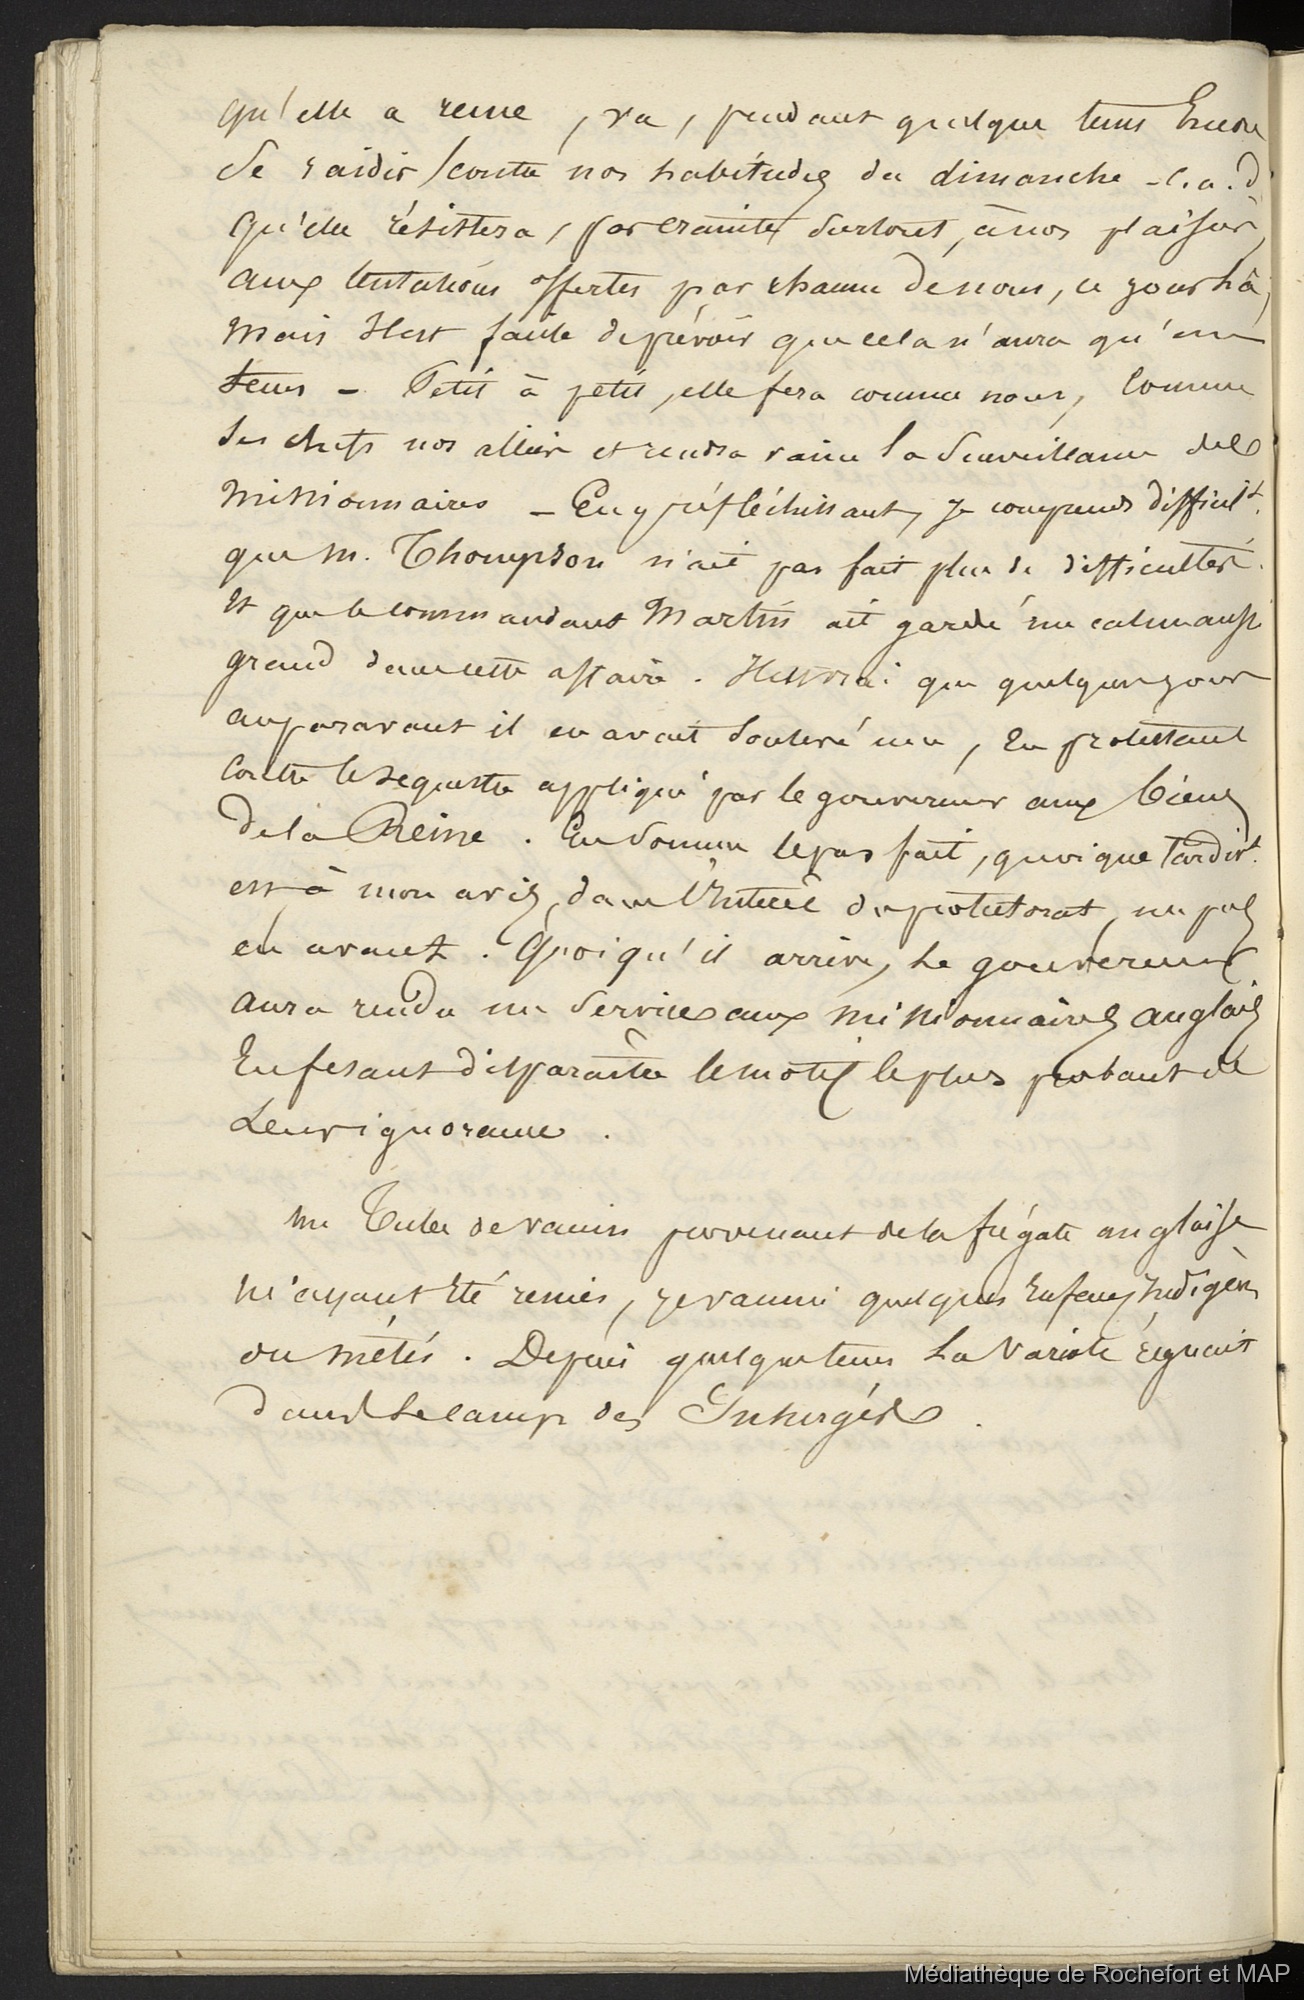 qu'elle a reine, va, pendant quelque tems Encore
se raidir contre nos habitudes du dimanche - c. a. d
qu'elle résistera, par crainte surtout, à nos plaisirs,
aux tentations offertes par chacun de nous, ce jour là,
mais Il est facile de prévoir que cela n'aura qu'un
tems - Petit à petit, elle fera comme nous, comme
ses chefs nos alliés et rendra vaine la surveillance des
missionnaires - En y réfléchissant, je comprends difficilt.
que m. Thompson n'ait pas fait plus de difficultés.
Et que le commandant Martin ait gardé un calme aussi
grand dans cette affaire. Il est vrai que quelques jours
auparavant il en avait soulevé une, En protestant
contre le sequestre appliqué par le gouverneur aux biens
de la Reine. En somme le pas fait, quoique Tardivt.
est à mon avis, dans l'Intérêt du protectorat, un pas
en avant. Quoiqu'il arrive, Le gouverneur
aura rendu un service aux missionnaires anglais
En fesant disparaître le motif le plus probant de
Leur ignorance.
un Tube de vaccin provenant de la frégate anglaise
m'ayant Eté remis, je vaccinai quelques Enfans Indigènes
ou métis. Depuis quelque tems La Variole régnait
dans Le camp des Insurgés.
Médiathèque de Rochefort et MAP